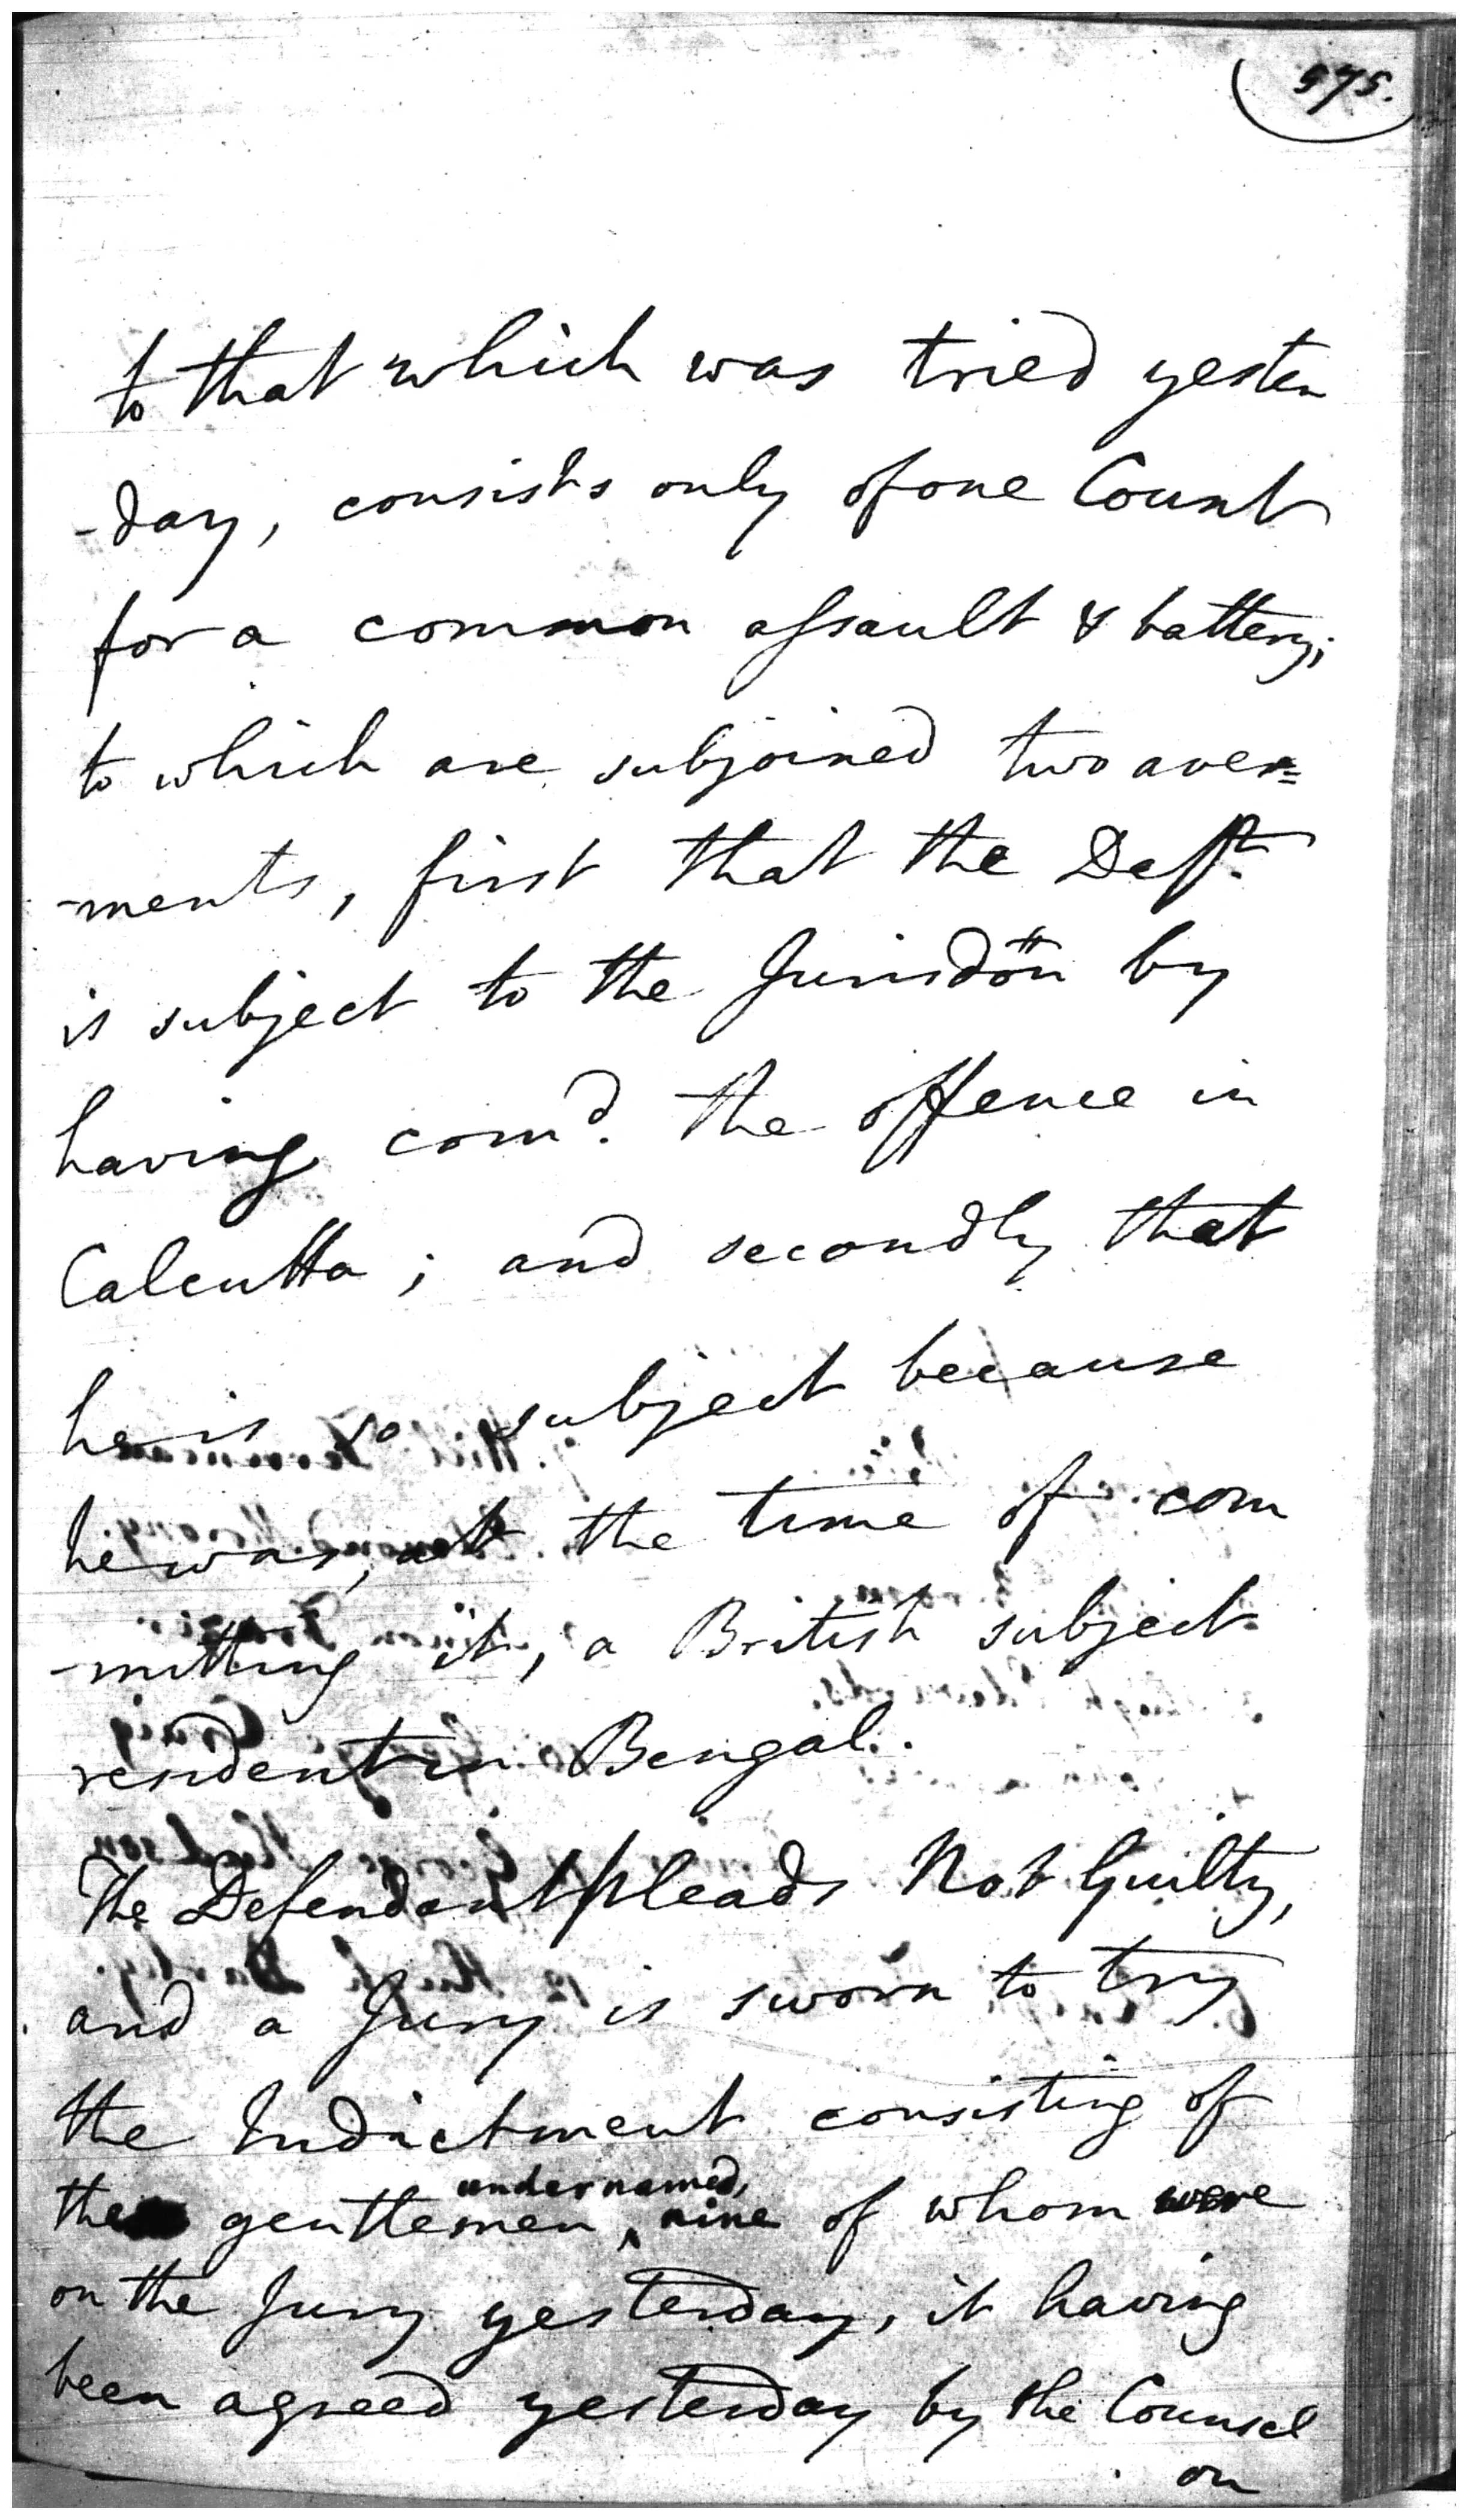 975.
to that which was tried yester
-day, consists only of one Count
for a common assault & battery;
to which are subjoined two aver=
-ments, first that the Deft.
is subject to the Jurisdōn by
having com̄d. the offence in
Calcutta; and secondly that
he is so subject because
he was, at the time of com
-mitting it, a British subject
resident in Bengal.
The Defendant pleads Not Guilty,
and a Jury is sworn to try
the Indictment consisting of
undernamed,
the gentlemen ‸ nine of whom were
on the Jury yesterday, it having
been agreed yesterday by the Counsel
on